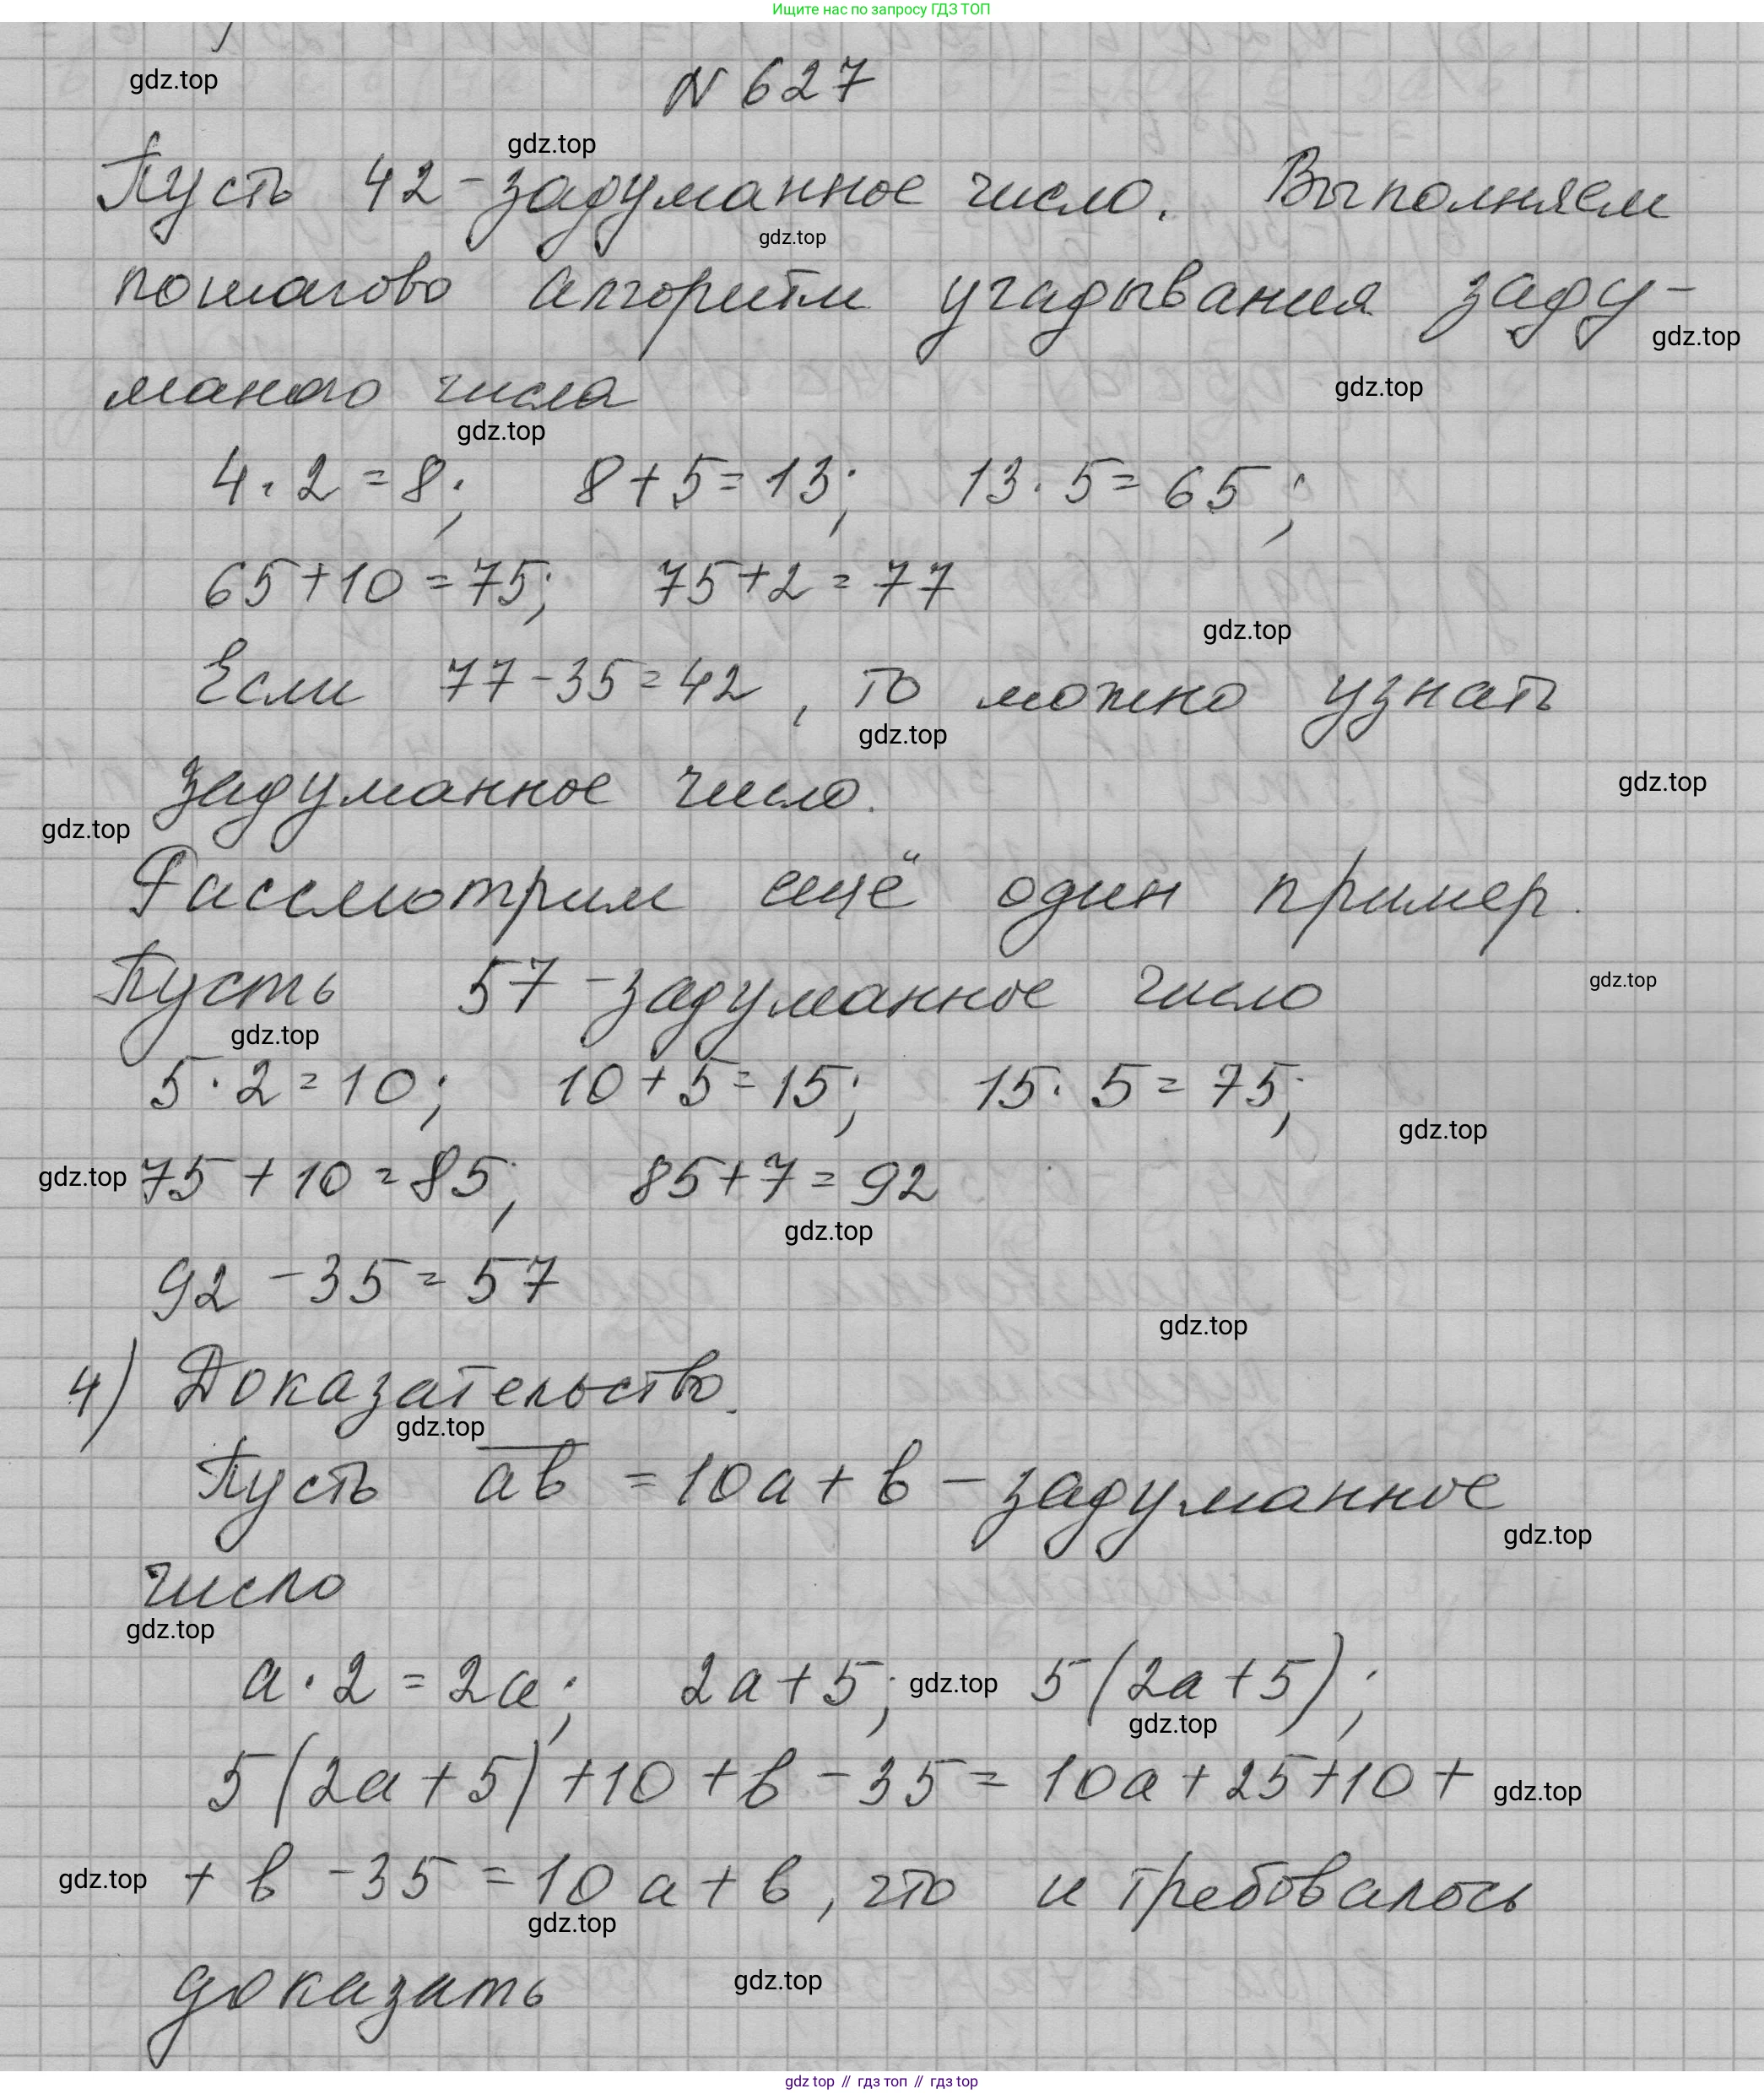 Ищите нас по запросу ГДЗ ТОП
gdz.top
N 627
gdz.top
Пусть 42 - задуманное число. Выполняем
gdz.top
пошагово алгоритм угадывания заду-
gdz.top
маного числа
gdz.top
gdz.top
4 · 2 = 8; 8 + 5 = 13; 13 · 5 = 65;
65 + 10 = 75; 75 + 2 = 77
gdz.top
Если 77 - 35 = 42, то можно узнать
gdz.top
задуманное число.
gdz.top
gdz.top
Рассмотрим ещё один пример.
Пусть 57 - задуманное число
gdz.top
gdz.top
5 · 2 = 10; 10 + 5 = 15; 15 · 5 = 75;
gdz.top
gdz.top 75 + 10 = 85; 85 + 7 = 92
gdz.top
92 - 35 = 57
gdz.top
4) Доказательство.
gdz.top
Пусть a̅b̅ = 10a + b - задуманное
gdz.top
число
gdz.top
a · 2 = 2a; 2a + 5; gdz.top 5(2a + 5);
gdz.top
5(2a + 5) + 10 + b - 35 = 10a + 25 + 10 + gdz.top
gdz.top + b - 35 = 10a + b, что и требовалось
gdz.top
доказать gdz.top
gdz top // гдз топ // гдз top